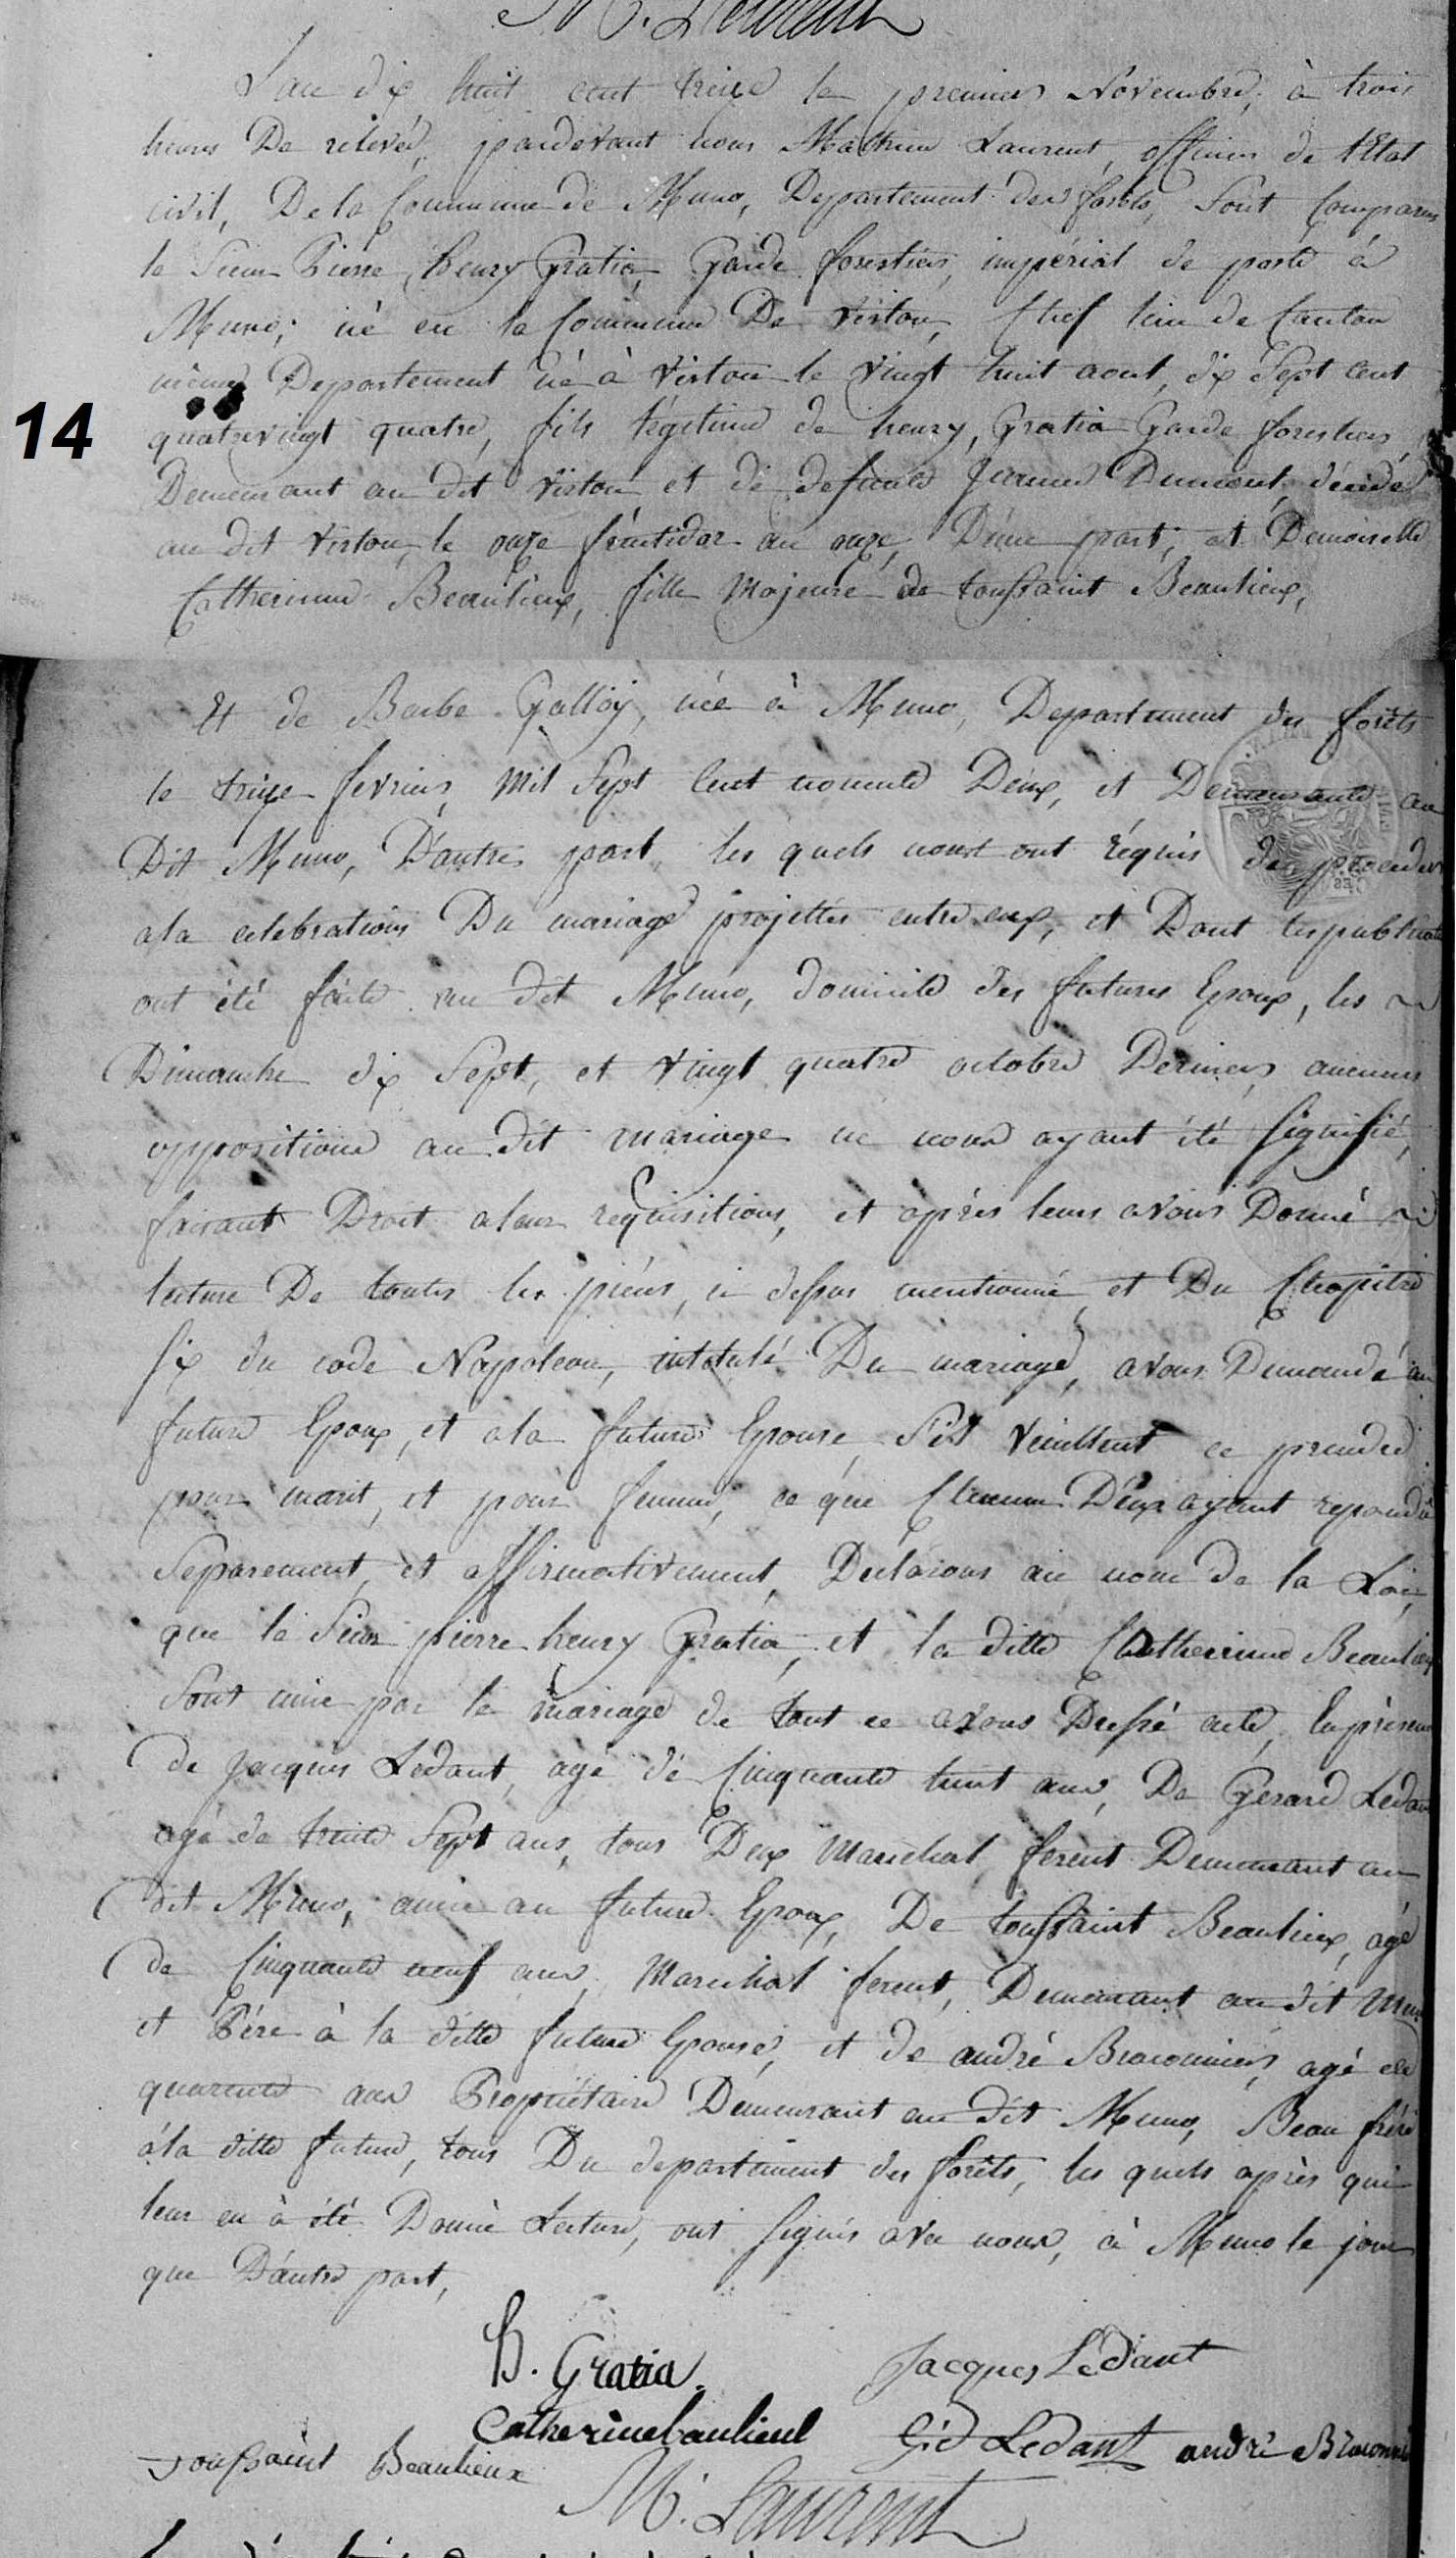 M. Laurent
L'an dix huit cent treize le premier Novembre, à trois
heures De relevé, pardevant nous Mathieu Laurent, officier de l'Etat
civil, De la Commune de Muno, Departement des forêts, Sont Comparus
le Sieur Pierre, henry Gratia, Garde forestier, impérial de poste à
Muno; né en la Commune De Virton, Chef lieu de Canton
même Departement né à Virton le vingt huit aout, dix Sept cent
14
quatrevingt quatre, fils légitime de henry, Gratia Garde forestier
Demeurant au dit Virton et de defunte Jeanne Dumont, décédé
au dit Virton, le onze fructidor an onze, D'une part; et Demoiselle
Catherinne Beaulieux, fille Majeure de toussaint Beaulieux,
Et de Barbe Galloy, née à Muno, Departement des forêts
le treize fevrier, Mil Sept Cent nonente Deux, et Demeurante au
Dit Muno, D'autre part, les quels nous ont réquis de proceder
a la celebrations Du mariage projettés entre eux, et Dont les publications
ont été faite au dit Muno, domicile des futures Epoux, les
Dimanche dix Sept, et vingt quatre octobre Dernier, aucunes
oppositions au dit mariage ne nous ayant été Signifié,
faisant Droit a leur requisitions, et après leurs avoir Donné
lecture De toutes les pièces, ci dessus mentionné, et Du Chapitre
Six du code Napoleon, intitulé Du mariage, avons Demandé au
future Epoux, et a la future Epouse, S'ils veuillent ce prendre
pour marit, et pour femme, ce que Chacun D'eux ayant repondu
Separement, et affirmativement, Declarons au nom de la Loi,
que le Sieur pierre henry Gratia, et la ditte Catherinne Beaulieux
Sont unie par le mariage de tout ce avons Dressé acte, En présence
de Jacques Ledant, agé de Cinquante huit ans, De Gerard Ledant
agé de trente Sept ans, tous Deux Marechal ferent Demeurant au
dit Muno, amie au future Epoux, De toussaint Beaulieux, agé
de Cinquante neuf ans, Marechal ferent, Demeurant au dit Muno
et Père à la ditte future Epouse, et de andré Braconnier, agé de
quarente ans Propriétaire Demeurant au dit Muno, Beau frère
à la ditte future, tous Du departement des forêts, les quels après que
leur en à été Donnè Lecture, ont Signés avec nous, à Muno le jour
que D'autre part,
H. Gratia. Jacques Lèdant
Catherinebaulieul Gd Ledant andrè Braconnier
Toussaint Beaulieux
M. Laurent